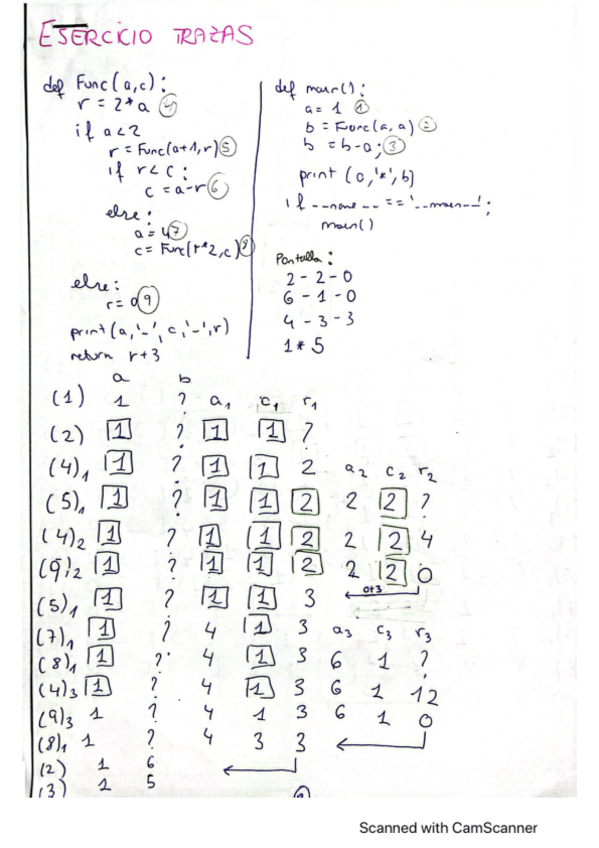 EJERCICIO TRAZAS
def Func(a,c):
r = 2*a ④
if a<2
r = Func(a+1,r) ⑤
if r<c:
c = a-r ⑥
else:
a = 4 ⑦
c = Func(r*2,c) ⑧
else:
r = 0 ⑨
print(a,'-',c,'-',r)
return r+3
def main():
a = 1 ①
b = Func(a,a) ②
b = b-a; ③
print (a,'*',b)
if __name__ == '__main__';
main()
Pantalla:
2 - 2 - 0
6 - 1 - 0
4 - 3 - 3
1 * 5
a b
(1) 1 ? a₁ c₁ r₁
(2) 1 ? 1 1 ?
(4)₁ 1 ? 1 1 2 a₂ c₂ r₂
(5)₁ 1 ? 1 1 2 2 2 ?
(4)₂ 1 ? 1 1 2 2 2 4
(9)₂ 1 ? 1 1 2 2 2 0
(5)₁ 1 ? 1 1 3 0+3
(7)₁ 1 ? 4 1 3 a₃ c₃ r₃
(8)₁ 1 ? 4 1 3 6 1 ?
(4)₃ 1 ? 4 1 3 6 1 12
(9)₃ 1 ? 4 1 3 6 1 0
(8)₁ 1 ? 4 3 3
(2) 1 6
(3) 1 5
Scanned with CamScanner